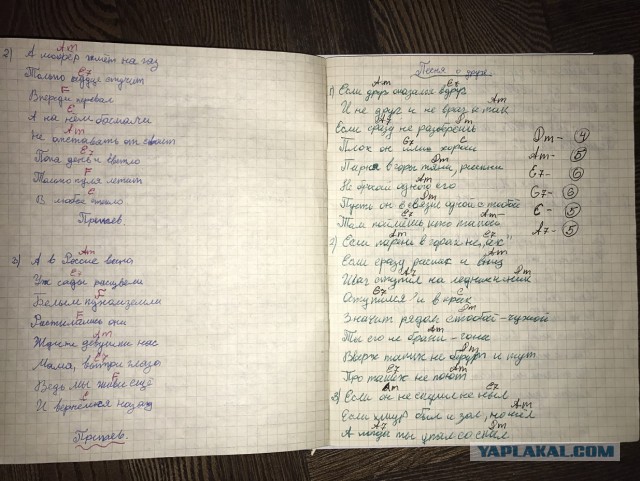 Am
2) А шофёр жмёт на газ
E7
Только сердце стучит
F
Впереди перевал
E
А на нём басмачи
Am
Не отставать от
E7
Пока день и светло
F
Только пуля летит
E
В любое стекло
Припев.
Am
3) А в России весна
E7
Уж сады расцвели
F
Белым пухом земли
F
Растились они
Am
Ждите девушки нас
E7
Мама, вытри глаза
F
Ведь мы живы ещё
E
И вернёмся назад
Припев.
Песня о друге.
Am E7
1) Если друг оказался вдруг
Am
И не друг и не враг а так
A7 Dm
Если сразу не разберёшь
G7 C
Плох он или хорош
Dm
Парня в горы тяни, рискни
Am
Не бросай одного его
Dm
Пусть он в связке одной с тобой
E7 Am
Там поймёшь, кто такой
Dm - 4
Am - 5
E7 - 6
G7 - 6
E - 5
A7 - 5
Am E7
2) Если парень в горах не "ах"
Am
Если сразу раскис и вниз
A7 Dm
Шаг ступил на ледник и ник
G7 C
Оступился и в крик
Dm
Значит рядом с тобой - чужой
Am
Ты его не брани - гони
Dm
Вверх таких не берут и тут
E7 Am
Про таких не поют
Am E7
3) Если он не скулил не ныл
Am
Если хмур был и зол, но шёл
A7 Dm
А когда ты упал со скал
YAPLAKAL.COM